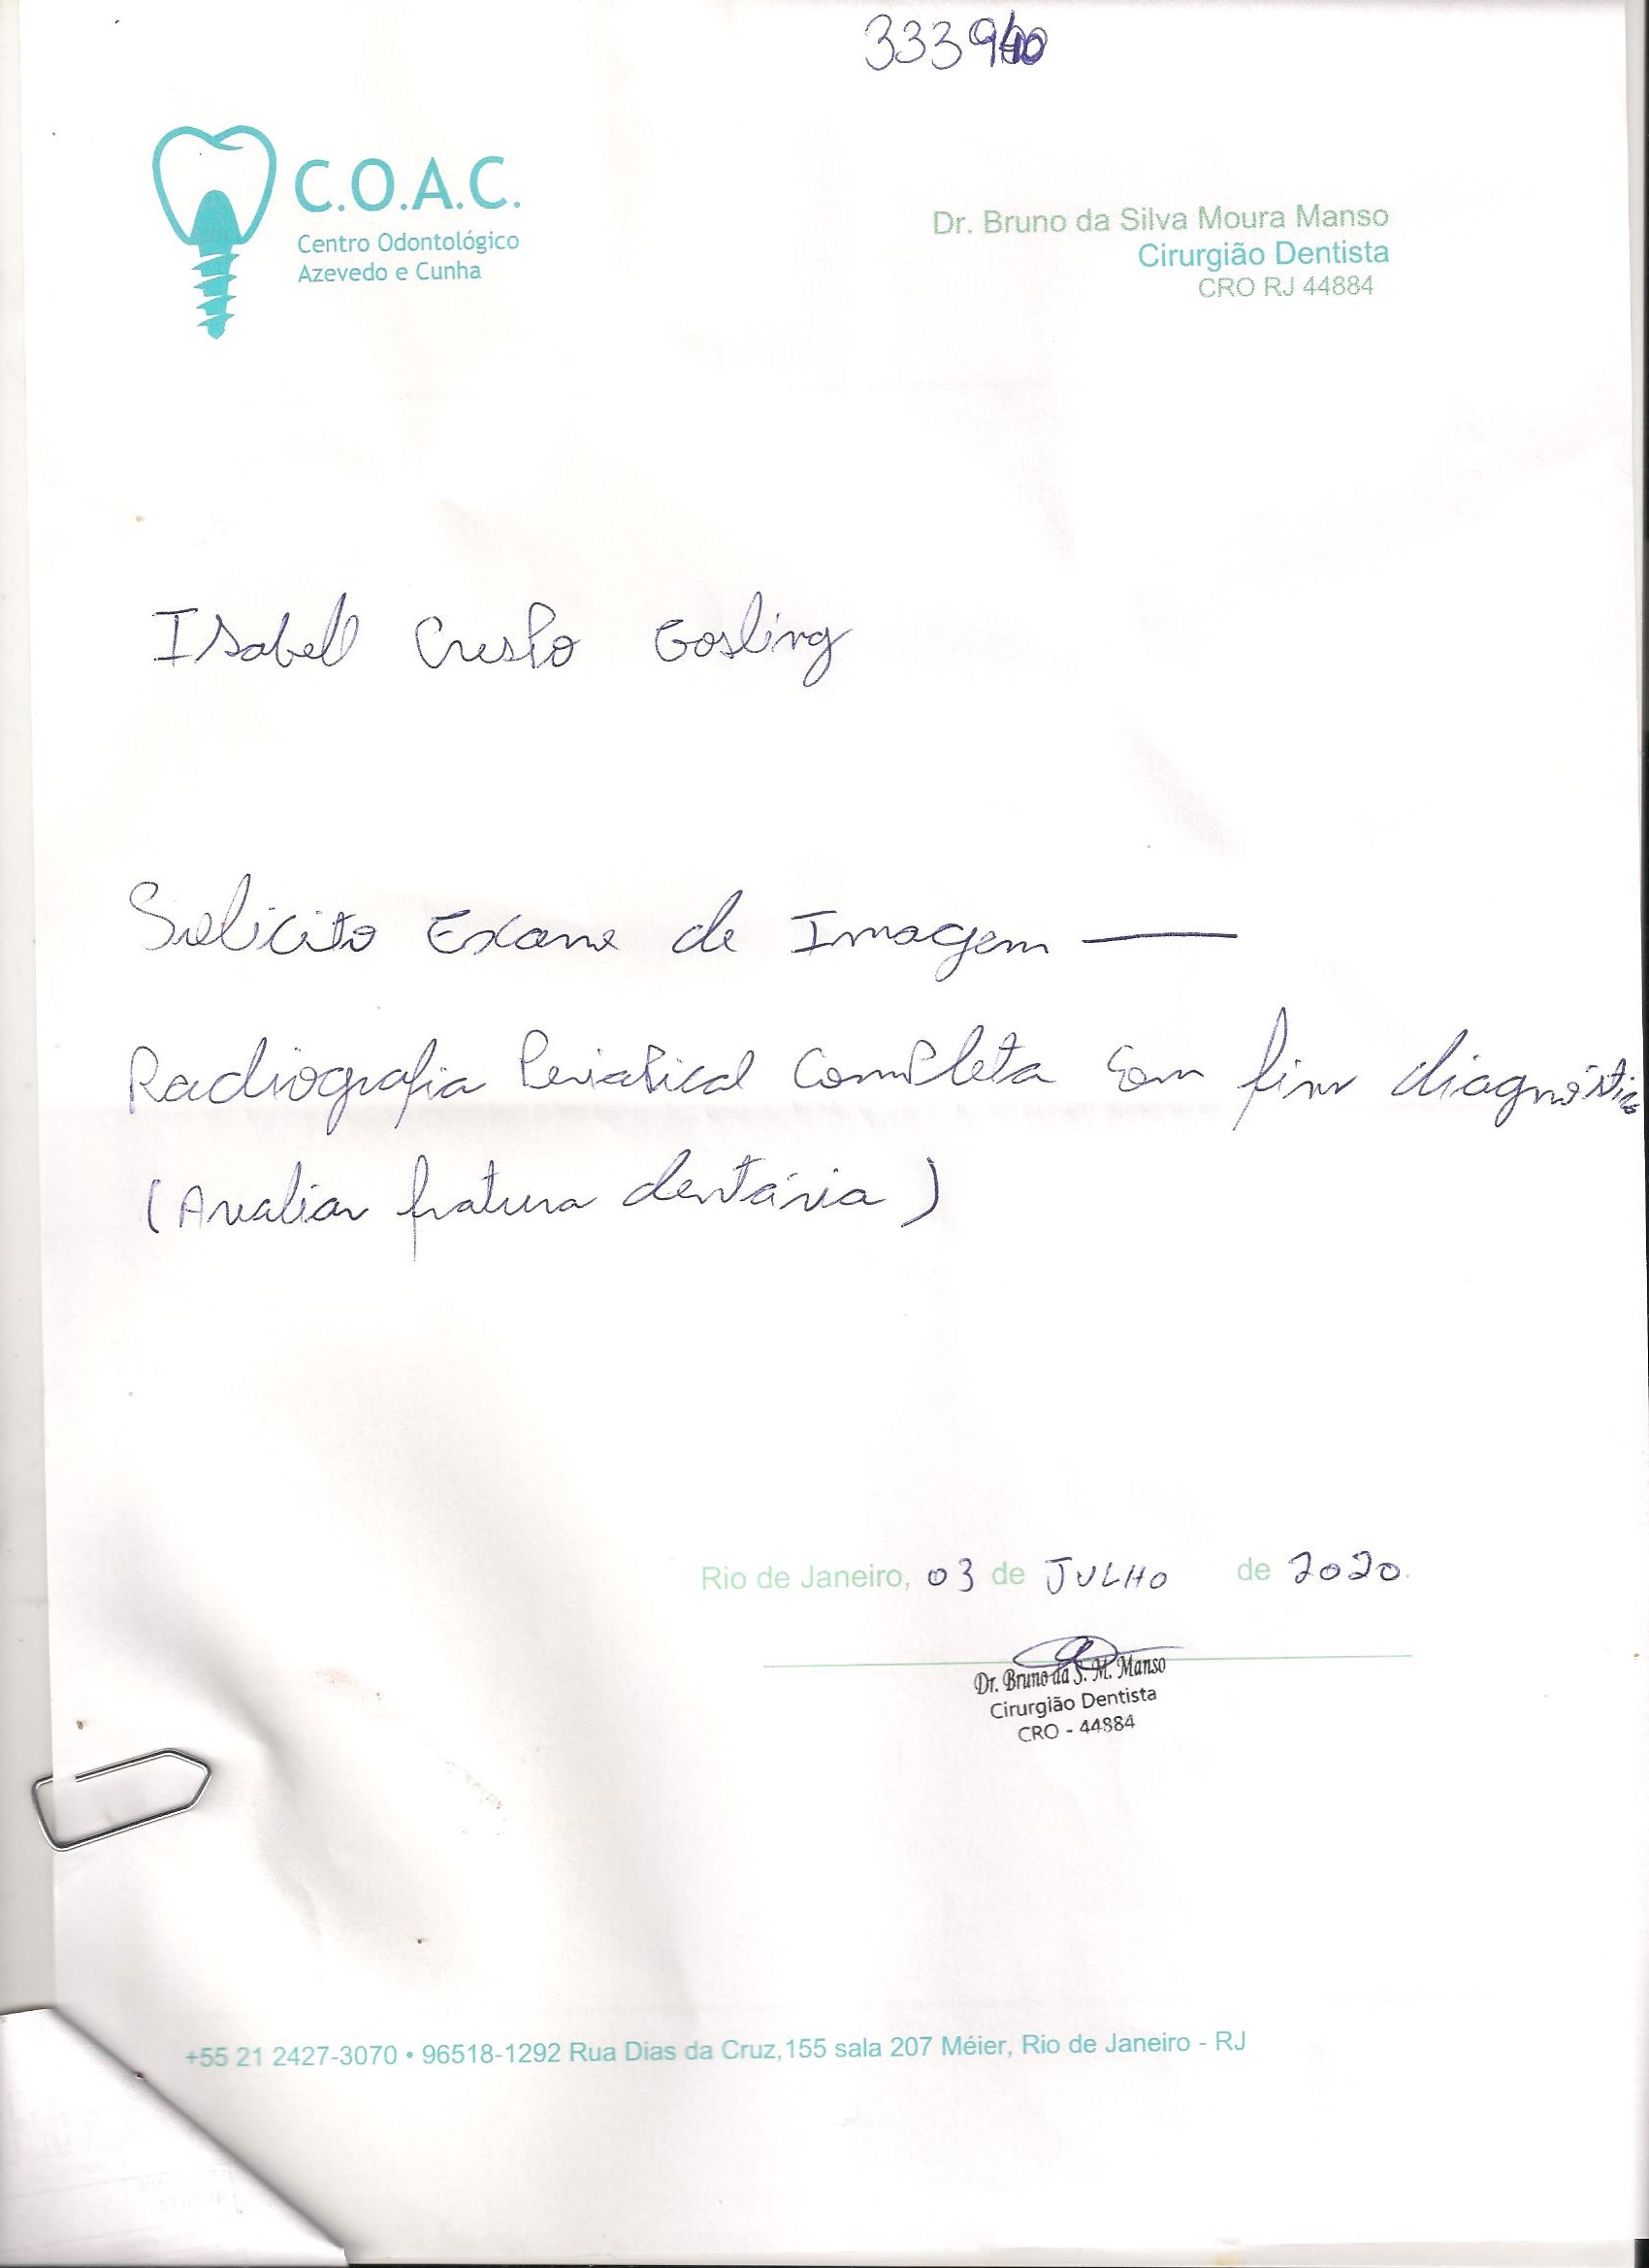 C.O.A.C.
Centro Odontológico
Azevedo e Cunha
Dr. Bruno da Silva Moura Manso
Cirurgião Dentista
CRO RJ 44884
Isabell Crespo Gosling
Solicito Exame de Imagem —
Radiografia Periapical Completa com fins diagnóstico
(Avaliar fratura dentária)
Rio de Janeiro, 03 de JULHO de 2020.
Dr. Bruno da S. M. Manso
Cirurgião Dentista
CRO - 44884
+55 21 2427-3070 • 96518-1292 Rua Dias da Cruz,155 sala 207 Méier, Rio de Janeiro - RJ